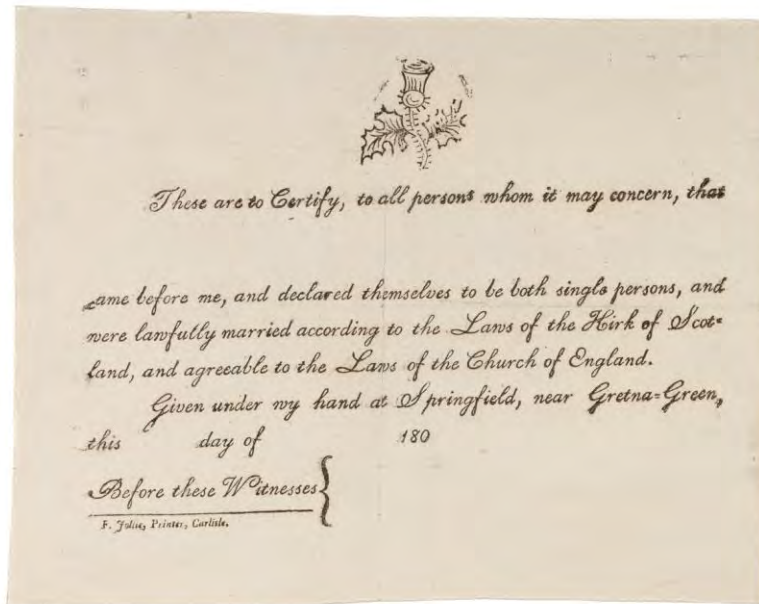 These are to Certify, to all persons whom it may concern, that
came before me, and declared themselves to be both single persons, and
were lawfully married according to the Laws of the Kirk of Scot=
land, and agreeable to the Laws of the Church of England.
Given under my hand at Springfield, near Gretna=Green,
this day of 180
Before these Witnesses
F. Jollie, Printer, Carlisle.